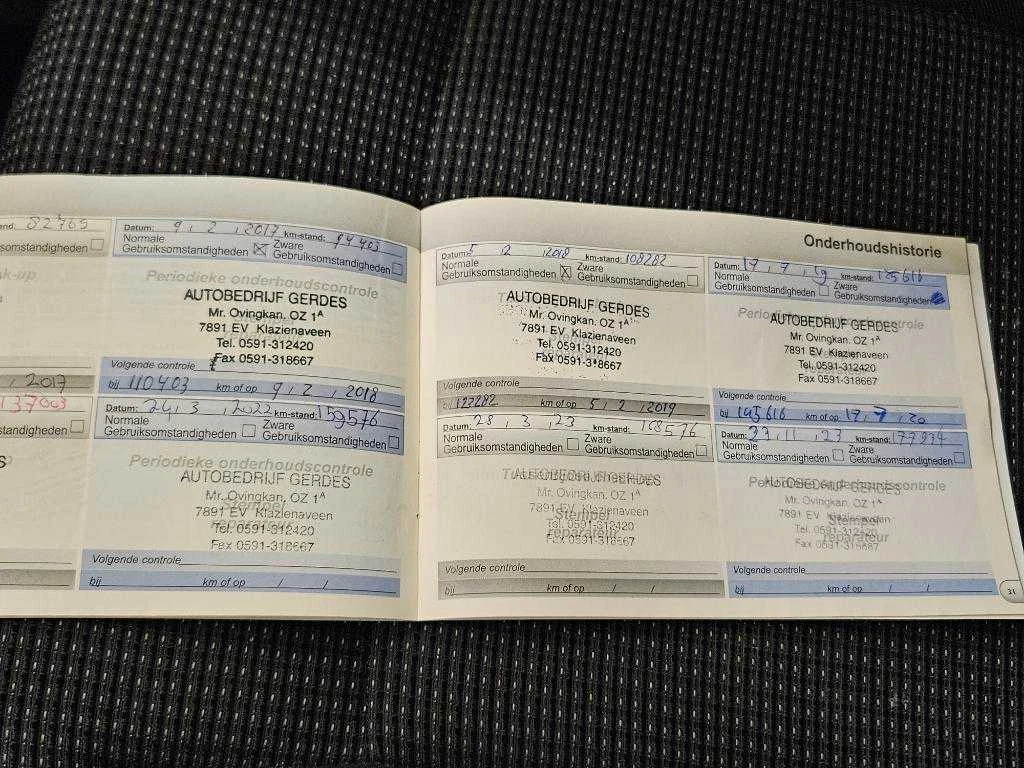 Onderhoudshistorie
82769
Gebruiksomstandigheden
2017
137003
Datum: 9, 2, 2017 km-stand: 94403
Normale Gebruiksomstandigheden Zware Gebruiksomstandigheden
Periodieke onderhoudscontrole
AUTOBEDRIJF GERDES
Mr. Ovingkan. OZ 1ᴬ
7891 EV Klazienaveen
Tel. 0591-312420
Fax 0591-318667
Volgende controle
bij 110403 km of op 9, 2, 2018
Datum: 24, 3, 2022 km-stand: 159576
Normale Gebruiksomstandigheden Zware Gebruiksomstandigheden
Periodieke onderhoudscontrole
AUTOBEDRIJF GERDES
Mr. Ovingkan, OZ 1ᴬ
7891 EV Klazienaveen
Tel. 0591-312420
Fax 0591-318667
Volgende controle
bij km of op / /
Datum: 5 12 2018 km-stand: 108282
Normale Gebruiksomstandigheden Zware Gebruiksomstandigheden
AUTOBEDRIJF GERDES
Mr. Ovingkan. OZ 1ᴬ
7891 EV Klazienaveen
Tel. 0591-312420
Fax 0591-318667
Volgende controle
km of op 5, 2, 2019
Datum: 28, 3, 23 km-stand: 168576
Normale Gebruiksomstandigheden Zware Gebruiksomstandigheden
AUTOBEDRIJF GERDES
Mr. Ovingkan, OZ 1ᴬ
7891 EV Klazienaveen
Stempel
Tel. 0591-312420
reparateur
Fax 0591-318667
Volgende controle
bij km of op / /
Datum: 17, 7, 19 km-stand: 125616
Normale Gebruiksomstandigheden Zware Gebruiksomstandigheden
AUTOBEDRIJF GERDES
Mr. Ovingkan. OZ 1ᴬ
7891 EV Klazienaveen
Tel. 0591-312420
Fax 0591-318667
Volgende controle
bij 145616 km of op 17, 7, 20
Datum: 27, 11, 23 km-stand:
Normale Gebruiksomstandigheden Zware Gebruiksomstandigheden
Periodieke onderhoudscontrole
AUTOBEDRIJF GERDES
Mr. Ovingkan, OZ 1ᴬ
7891 EV Klazienaveen
Stempel
Tel. 0591-312420
reparateur
Fax 0591-318667
Volgende controle
bij km of op / /
31